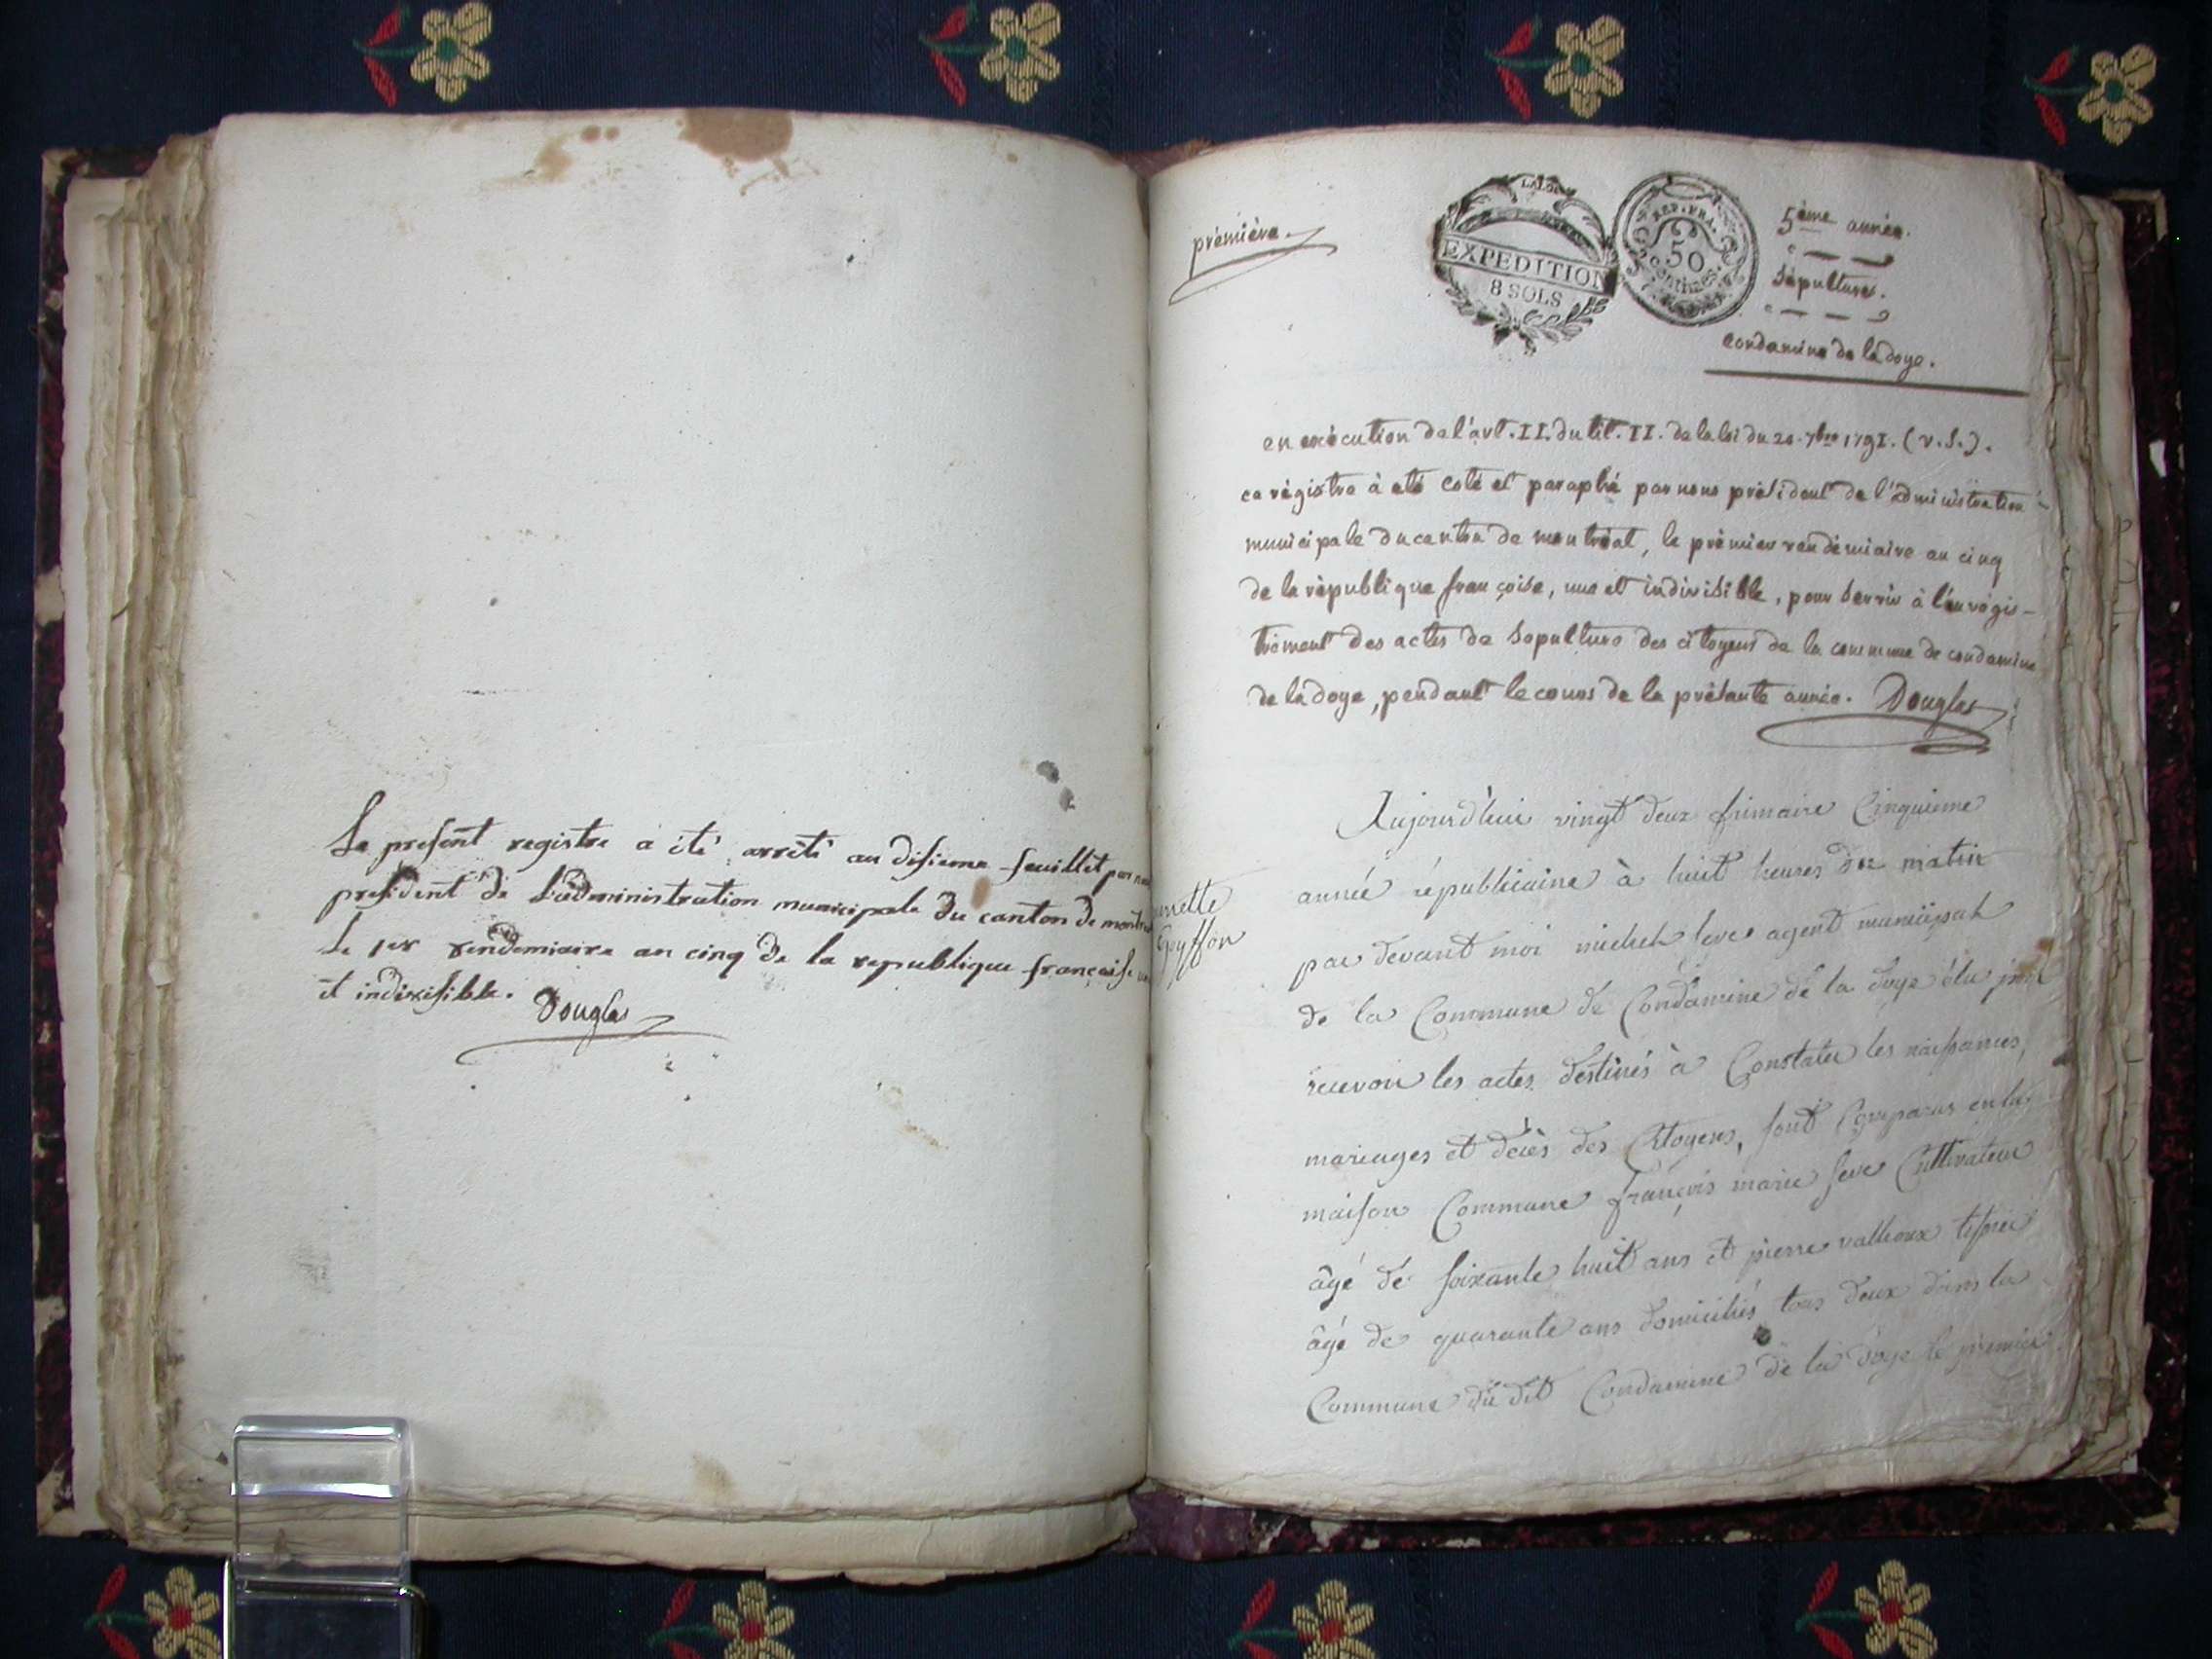 Le present registre a été arrêté au disieme feuillet par
president de L'administration municipale du canton de
Le 1er vendemiaire an cinq de la republique française
et indivisible. Dougla
première.
EXPEDITION
8 SOLS
REP. FRA.
50
centimes.
5ème année.
sépulture.
condamine de ladoye.
en exécution de l'art. II. du tit. II. de la loi du 20. 7bre 1791. (v.s.).
ce régistre à eté coté et paraphé par nous président de l'administration
municipale du canton de montréal, le prémier vendémiaire an cinq
de la république françoise, une et indivisible, pour servir à l'enrégis-
trement des actes de sepulture des citoyens de la commune de condamine
de ladoye, pendant le cours de la présente année. Douglas
Geyffon
Aujourd'hui vingt deux frimaire Cinquieme
année républicaine à huit heures du matin
par devant moi michel seve agent municipal
de la Commune de Condamine de la doye élu pour
recevoir les actes destinés à Constater les naissances,
mariages et décès des Citoyens, sont Comparus en la
maison Commune françois marie seve Cultivateur
âgé de soixante huit ans et pierre vallioux tissier
âgé de quarante ans domiciliés tous deux dans la
Commune du dit Condamine de la doye le premier